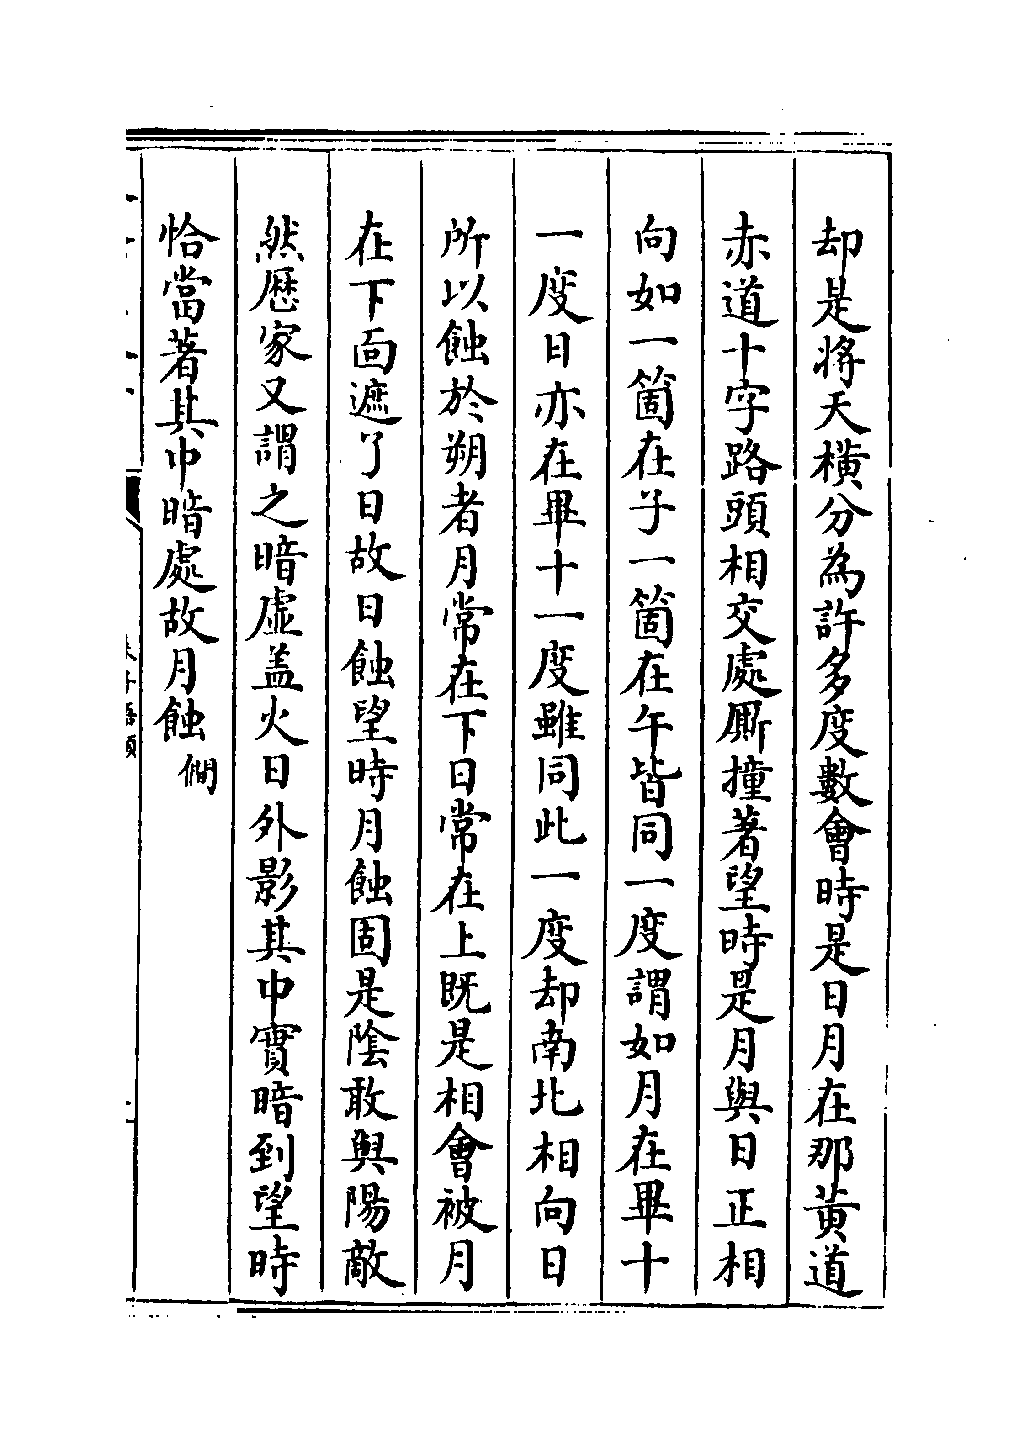 却是將天橫分為許多度數會時是日月在那黃道
赤道十字路頭相交處厮撞著望時是月與日正相
向如一箇在子一箇在午皆同一度謂如月在畢十
一度日亦在畢十一度雖同此一度却南北相向日
所以蝕於朔者月常在下日常在上既是相會被月
在下面遮了日故日蝕望時月蝕固是陰敢與陽敵
然歴家又謂之暗虛盖火日外影其中實暗到望時
恰當著其中暗處故月蝕 僩